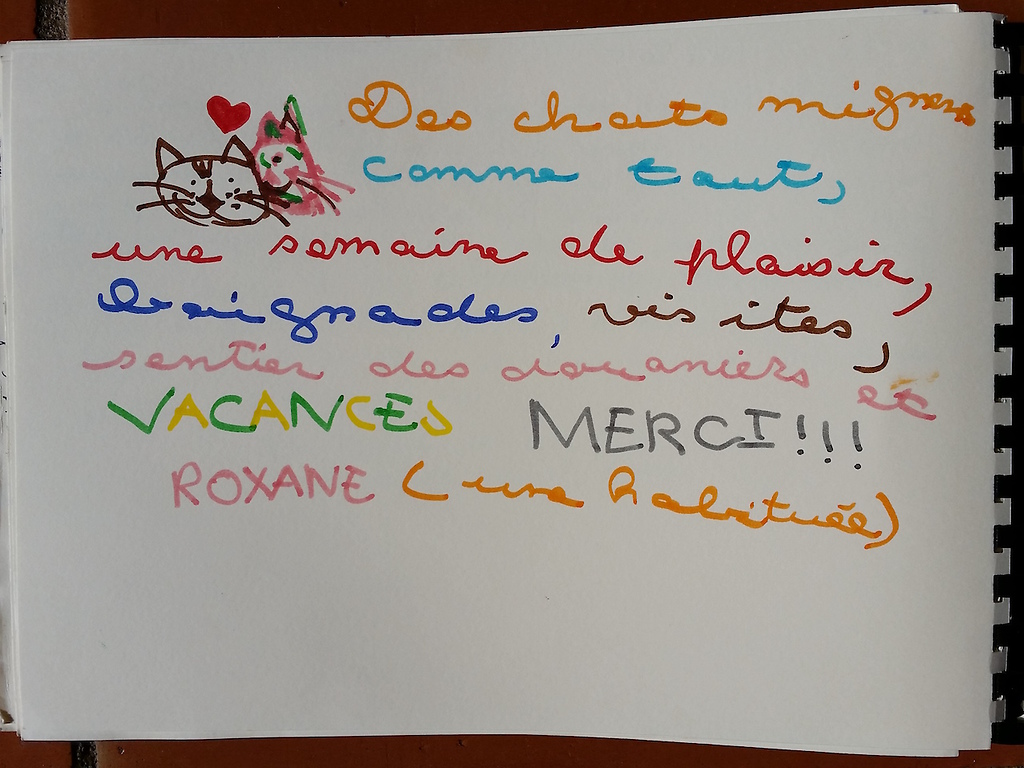 Des chats mignons
comme tout,
une semaine de plaisir,
baignades, visites,
sentier des douaniers et
VACANCES MERCI!!!
ROXANE (une habituée)